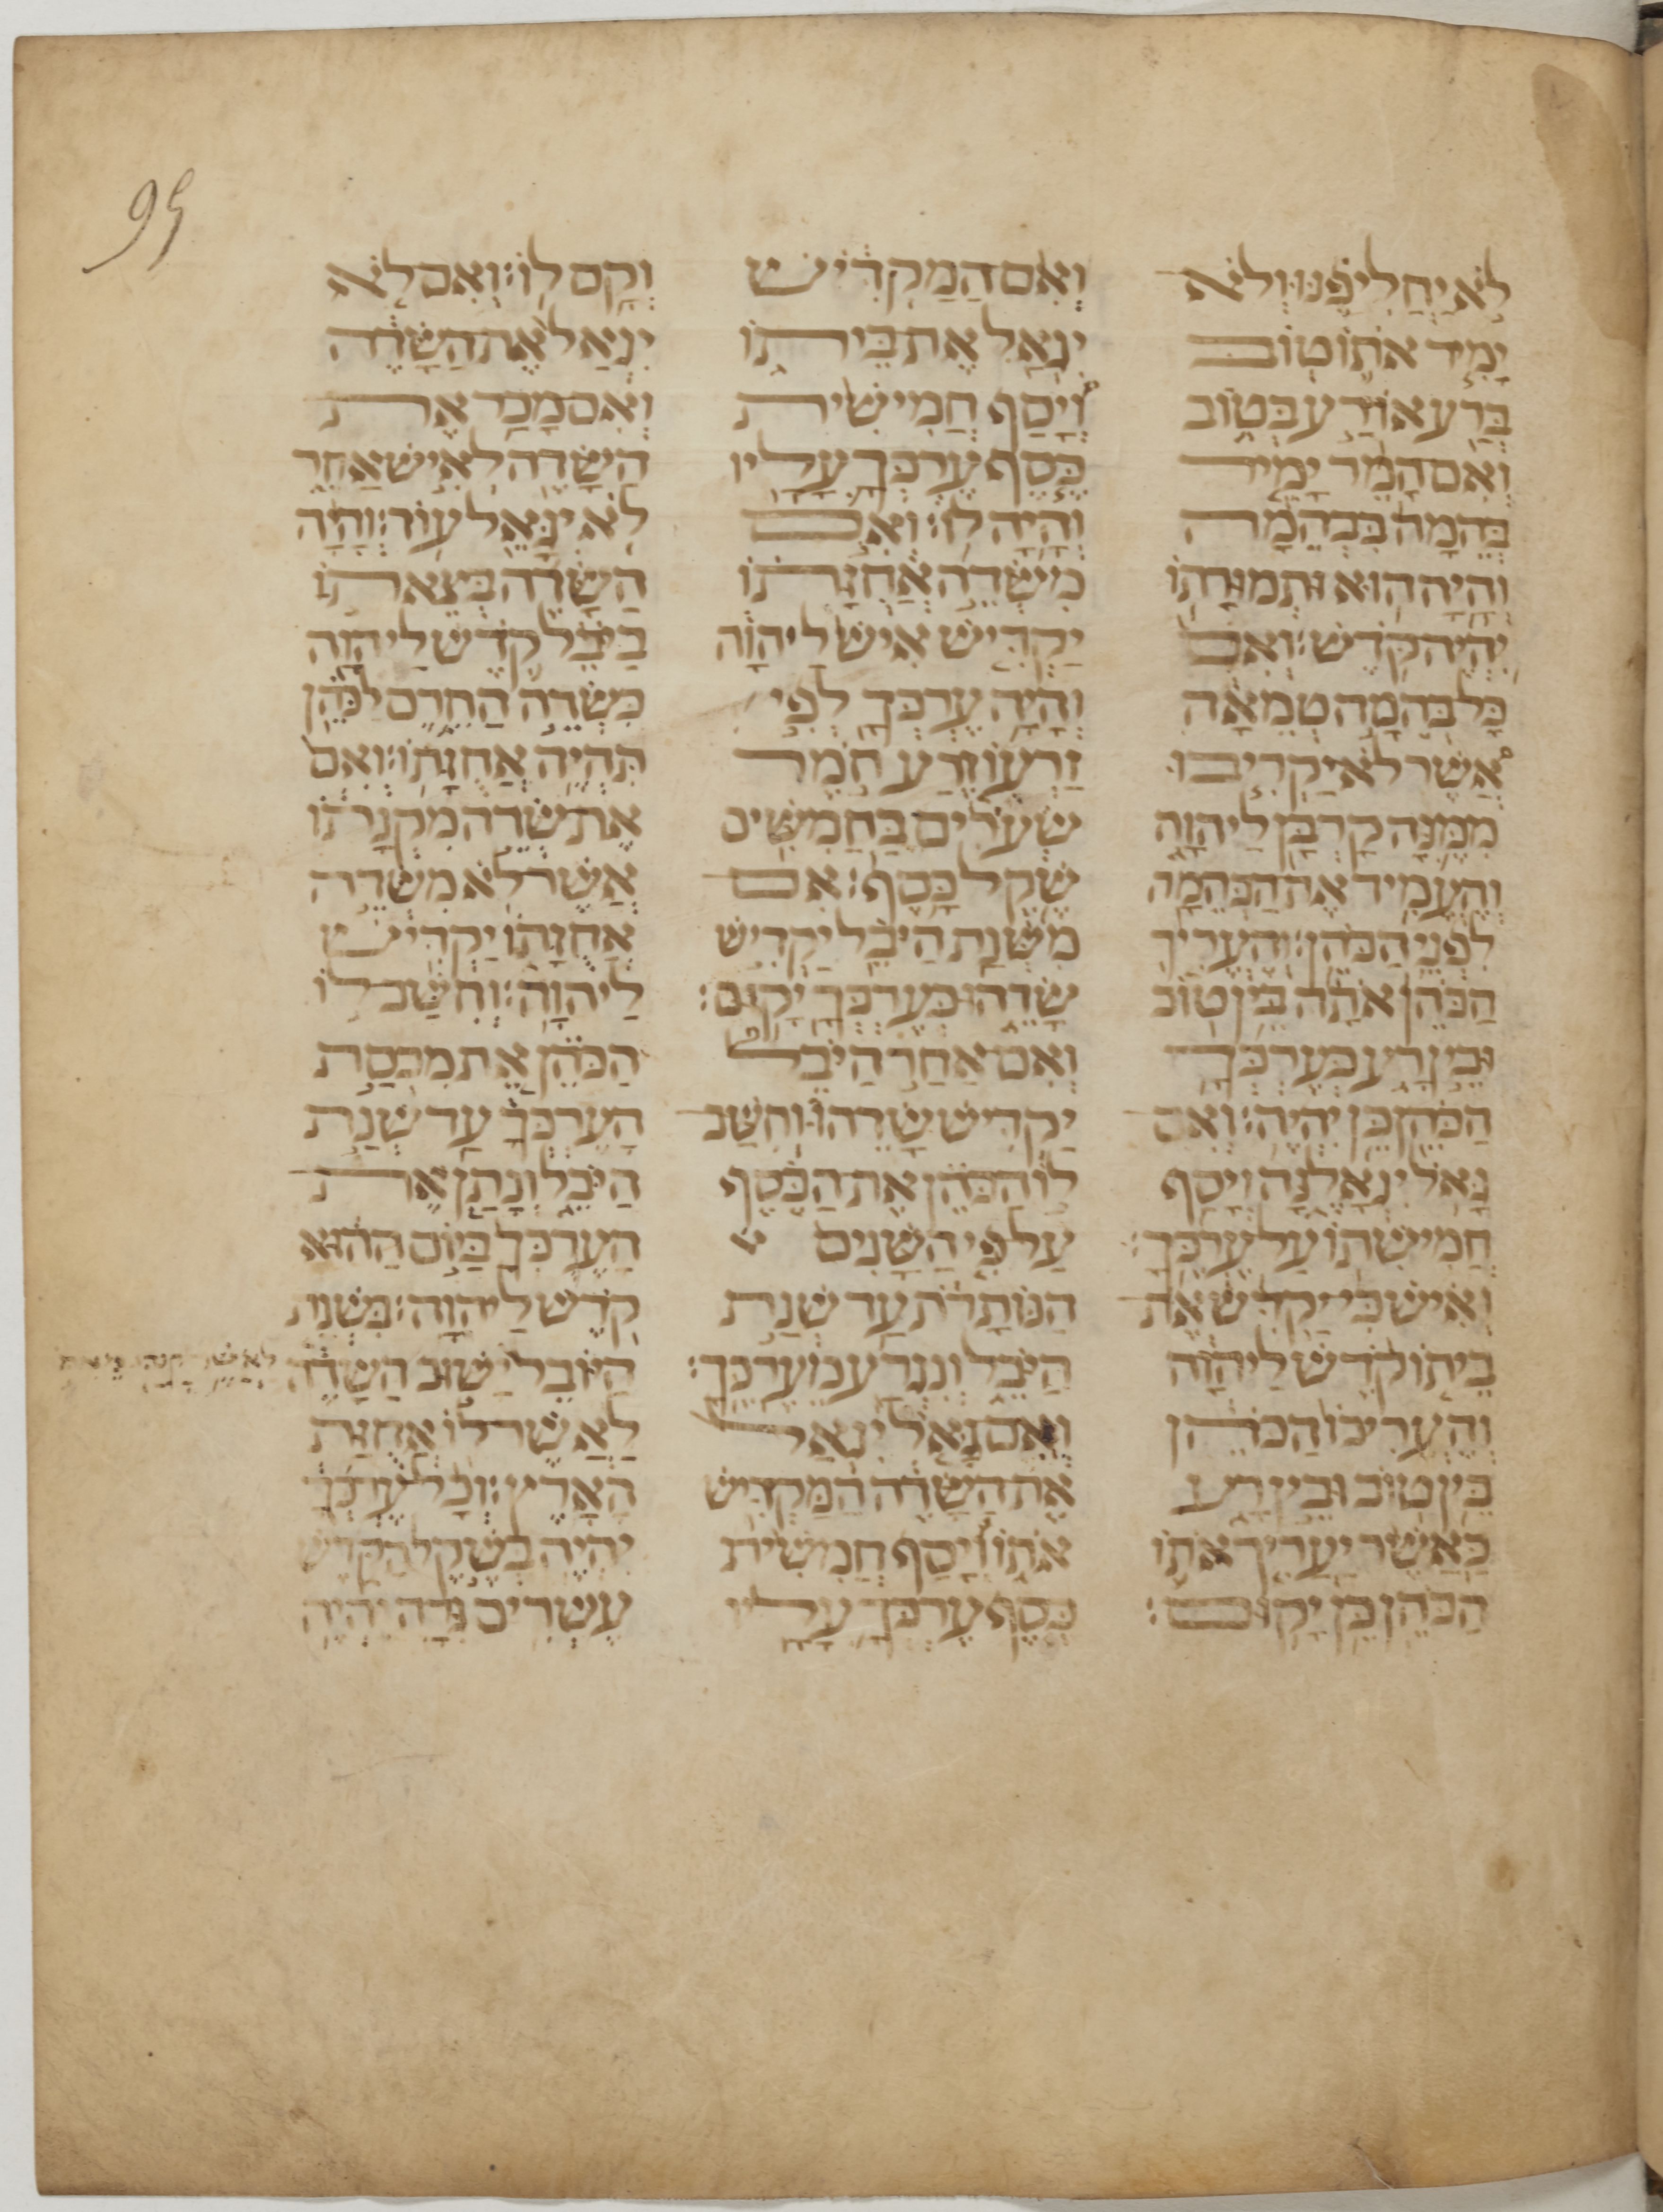 95
לֹא יַחֲלִיפֶנּוּ וְלֹא
יָמִיר אֹתוֹ טוֹב
בְּרָע אוֹ רַע בְּטוֹב
וְאִם הָמֵר יָמִיר
בְּהֵמָה בִּבְהֵמָה
וְהָיָה הוּא וּתְמוּרָתוֹ
יִהְיֶה קֹּדֶשׁ׃ וְאִם
כָּל בְּהֵמָה טְמֵאָה
אֲשֶׁר לֹא יַקְרִיבוּ
מִמֶּנָּה קָרְבָּן לַיהוָה
וְהֶעֱמִיד אֶת הַבְּהֵמָה
לִפְנֵי הַכֹּהֵן׃ וְהֶעֱרִיךְ
הַכֹּהֵן אֹתָהּ בֵּין טוֹב
וּבֵין רָע כְּעֶרְכְּךָ
הַכֹּהֵן כֵּן יִהְיֶה׃ וְאִם
גָּאֹל יִגְאָלֶנָּה וְיָסַף
חֲמִישִׁתוֹ עַל עֶרְכֶּךָ׃
וְאִישׁ כִּי יַקְדִּשׁ אֶת
בֵּיתוֹ קֹדֶשׁ לַיהוָה
וְהֶעֱרִיכוֹ הַכֹּהֵן
בֵּין טוֹב וּבֵין רָע
כַּאֲשֶׁר יַעֲרִיךְ אֹתוֹ
הַכֹּהֵן כֵּן יָקוּם׃
וְאִם הַמַּקְדִּישׁ
יִגְאַל אֶת בֵּיתוֹ
וְיָסַף חֲמִישִׁית
כֶּסֶף עֶרְכְּךָ עָלָיו
וְהָיָה לוֹ׃ וְאִם
מִשְּׂדֵה אֲחֻזָּתוֹ
יַקְדִּישׁ אִישׁ לַיהוָה
וְהָיָה עֶרְכְּךָ לְפִי
זַרְעוֹ זֶרַע חֹמֶר
שְׂעֹרִים בַּחֲמִשִּׁים
שֶׁקֶל כָּסֶף׃ אִם
מִשְּׁנַת הַיֹּבֵל יַקְדִּישׁ
שָׂדֵהוּ כְּעֶרְכְּךָ יָקוּם׃
וְאִם אַחַר הַיֹּבֵל
יַקְדִּישׁ שָׂדֵהוּ וְחִשַּׁב
לוֹ הַכֹּהֵן אֶת הַכֶּסֶף
עַל פִּי הַשָּׁנִים
הַנּוֹתָרֹת עַד שְׁנַת
הַיֹּבֵל וְנִגְרַע מֵעֶרְכֶּךָ׃
וְאִם גָּאֹל יִגְאַל
אֶת הַשָּׂדֶה הַמַּקְדִּישׁ
אֹתוֹ וְיָסַף חֲמִשִׁית
כֶּסֶף עֶרְכְּךָ עָלָיו
וְקָם לוֹ׃ וְאִם לֹא
יִגְאַל אֶת הַשָּׂדֶה
וְאִם מָכַר אֶת
הַשָּׂדֶה לְאִישׁ אַחֵר
לֹא יִגָּאֵל עוֹד׃ וְהָיָה
הַשָּׂדֶה בְּצֵאתוֹ
בַיֹּבֵל קֹדֶשׁ לַיהוָה
כִּשְׂדֵה הַחֵרֶם לַכֹּהֵן
תִּהְיֶה אֲחֻזָּתוֹ׃ וְאִם
אֶת שְׂדֵה מִקְנָתוֹ
אֲשֶׁר לֹא מִשְּׂדֵה
אֲחֻזָּתוֹ יַקְדִּישׁ
לַיהוָה׃ וְחִשַּׁב לוֹ
הַכֹּהֵן אֵת מִכְסַת
הָעֶרְכְּךָ עַד שְׁנַת
הַיֹּבֵל וְנָתַן אֶת
הָעֶרְכְּךָ בַּיּוֹם הַהוּא
קֹדֶשׁ לַיהוָה׃ בִּשְׁנַת
הַיּוֹבֵל יָשׁוּב הַשָּׂדֶה
לַאֲשֶׁר קָנָהוּ מֵאִתּוֹ
לַאֲשֶׁר לוֹ אֲחֻזַּת
הָאָרֶץ׃ וְכָל עֶרְכְּךָ
יִהְיֶה בְּשֶׁקֶל הַקֹּדֶשׁ
עֶשְׂרִים גֵּרָה יִהְיֶה